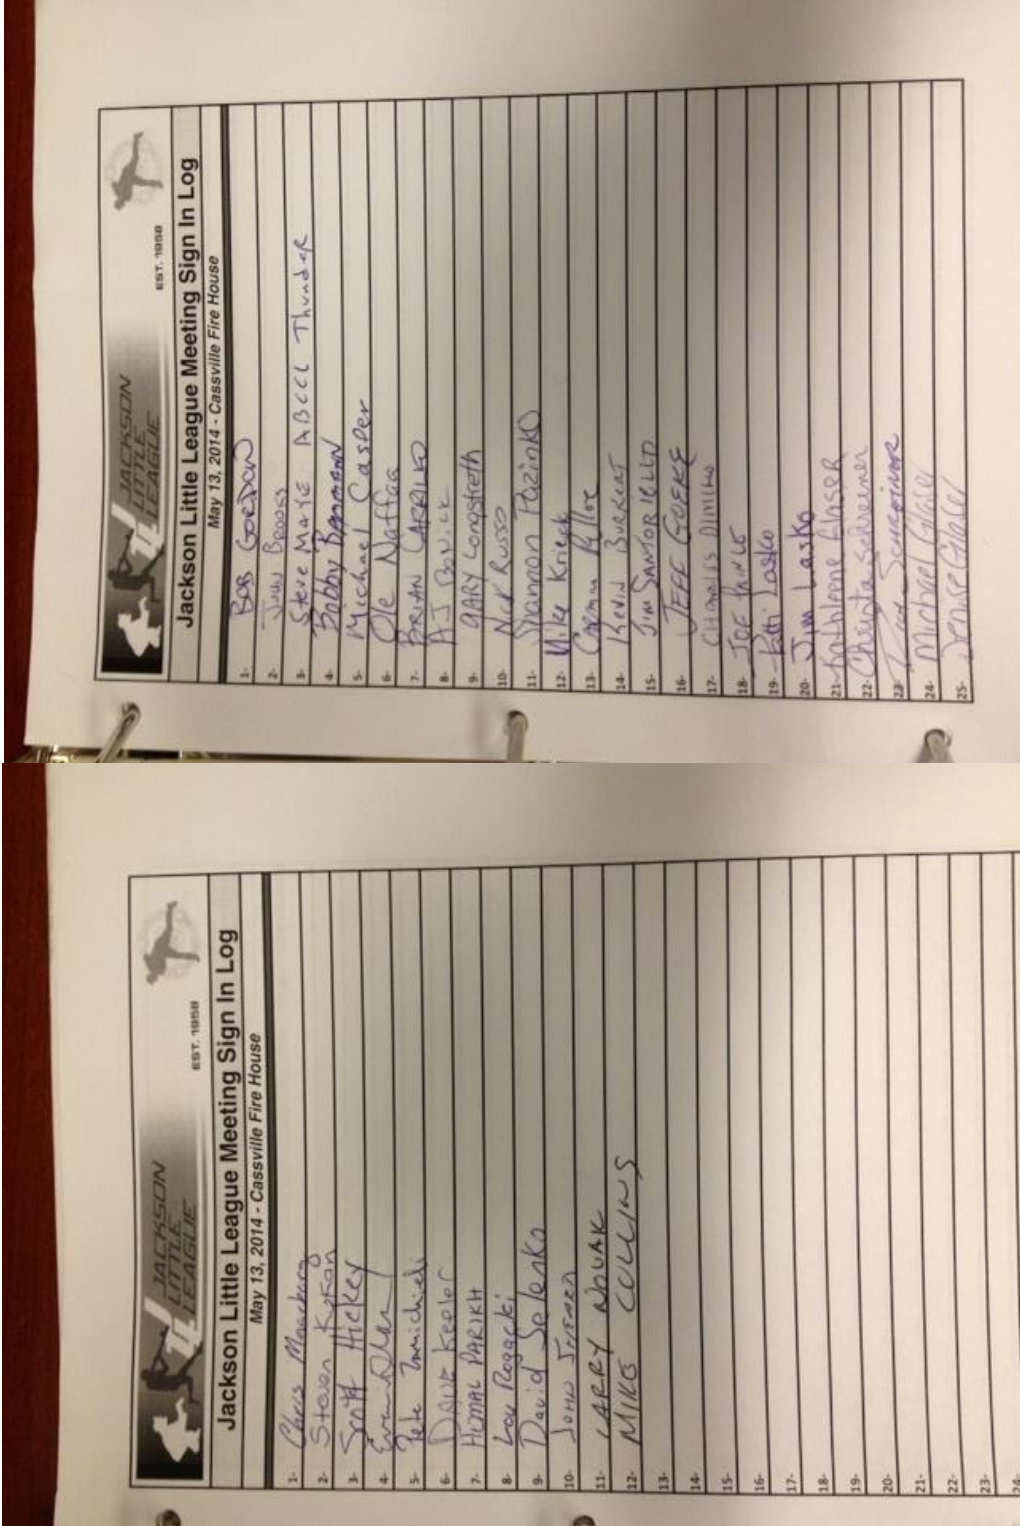 JACKSON
LITTLE
LEAGUE
EST. 1958
Jackson Little League Meeting Sign In Log
May 13, 2014 - Cassville Fire House
1- BOB GORDON
2- John BROOKS
3- Steve MAYE ABCCL Thunder
4- Bobby
5- Michael Casper
6- Ole Naftaa
7- BRIAN
8- AJ
9- GARY Longstreth
10- Nick RUSSO
11- Shannon Pazinko
12- Mike Kriegk
13-
14- Kevin BURKERT
15- Jim SANTORIELLO
16- JEFF GOEKE
17- CHARLES DIMINO
18- JOE
19- Patti Lasko
20- Jim Lasko
21- Kathleene Glaser
22- Christa Schreiner
23-
24- Michael Glaser
25- Denise Glaser
JACKSON
LITTLE
LEAGUE
EST. 1958
Jackson Little League Meeting Sign In Log
May 13, 2014 - Cassville Fire House
1- Chris
2- Steven
3- Scott Hickey
4-
5- Pete
6- DAVE Keeler
7- HEMAL PARIKH
8- Lou Rogacki
9- David Selenko
10- JOHN
11- LARRY NOVAK
12- MIKE COLLINS
13-
14-
15-
16-
17-
18-
19-
20-
21-
22-
23-
24-